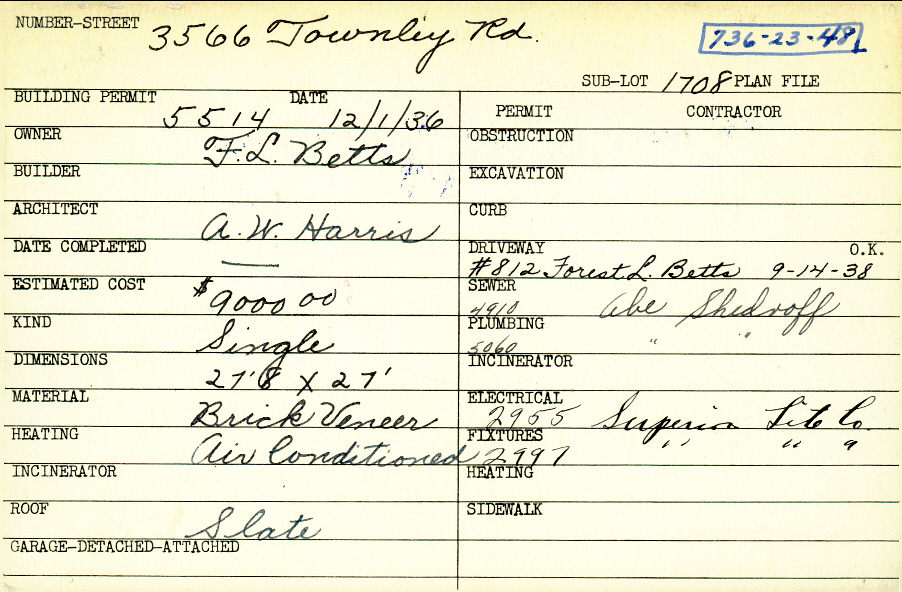 NUMBER-STREET 3566 Townley Rd. 736-23-48
SUB-LOT 1708 PLAN FILE
BUILDING PERMIT 5514 DATE 12/1/36
PERMIT CONTRACTOR
OWNER F.L. Betts
OBSTRUCTION
BUILDER
EXCAVATION
ARCHITECT A. W. Harris
CURB
DATE COMPLETED —
DRIVEWAY #812 Forest L. Betts 9-14-38 O.K.
ESTIMATED COST $9000 00
SEWER 4910 Abe Shedroff
KIND Single
PLUMBING 5060 " "
DIMENSIONS 27'8 X 27'
INCINERATOR
MATERIAL Brick Veneer
ELECTRICAL 2955 Superior Lite Co.
HEATING Air Conditioned
FIXTURES 2997 " " "
INCINERATOR
HEATING
ROOF Slate
SIDEWALK
GARAGE-DETACHED-ATTACHED